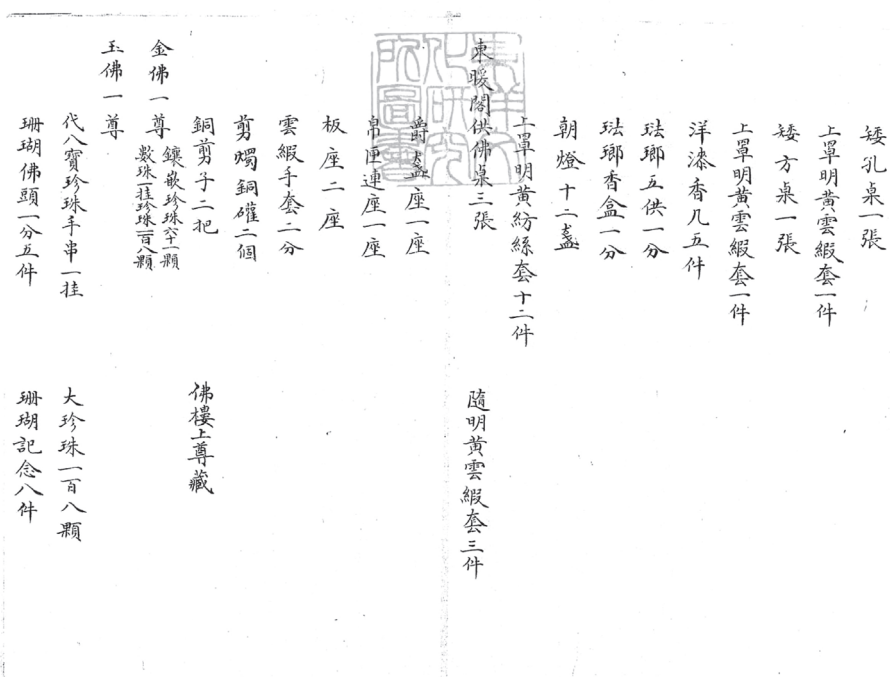 矮孔桌一張
上罩明黃雲緞套一件
矮方桌一張
上罩明黃雲緞套一件
洋漆香几五件
琺瑯五供一分
琺瑯香盒一分
朝燈十二盞
上罩明黃紡絲套十二件
東暖閣供佛桌三張
隨明黃雲緞套三件
爵盞座一座
帛匣連座一座
板座二座
雲緞手套二分
剪燭銅礶二個
銅剪子二把
佛樓上尊藏
金佛一尊
鑲嵌珍珠六十一顆
數珠一挂珍珠一百八顆
玉佛一尊
代八寶珍珠手串一挂
大珍珠一百八顆
珊瑚佛頭一分五件
珊瑚記念八件